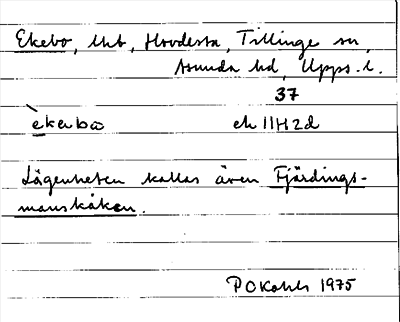 Ekebo, lht, Hovdesta, Tillinge sn,
Asunda hd, Upps. l.
37
èkerbω ek 11H2d
Lägenheten kallas även Fjärdings-
manskåken.
P O Kohls 1975